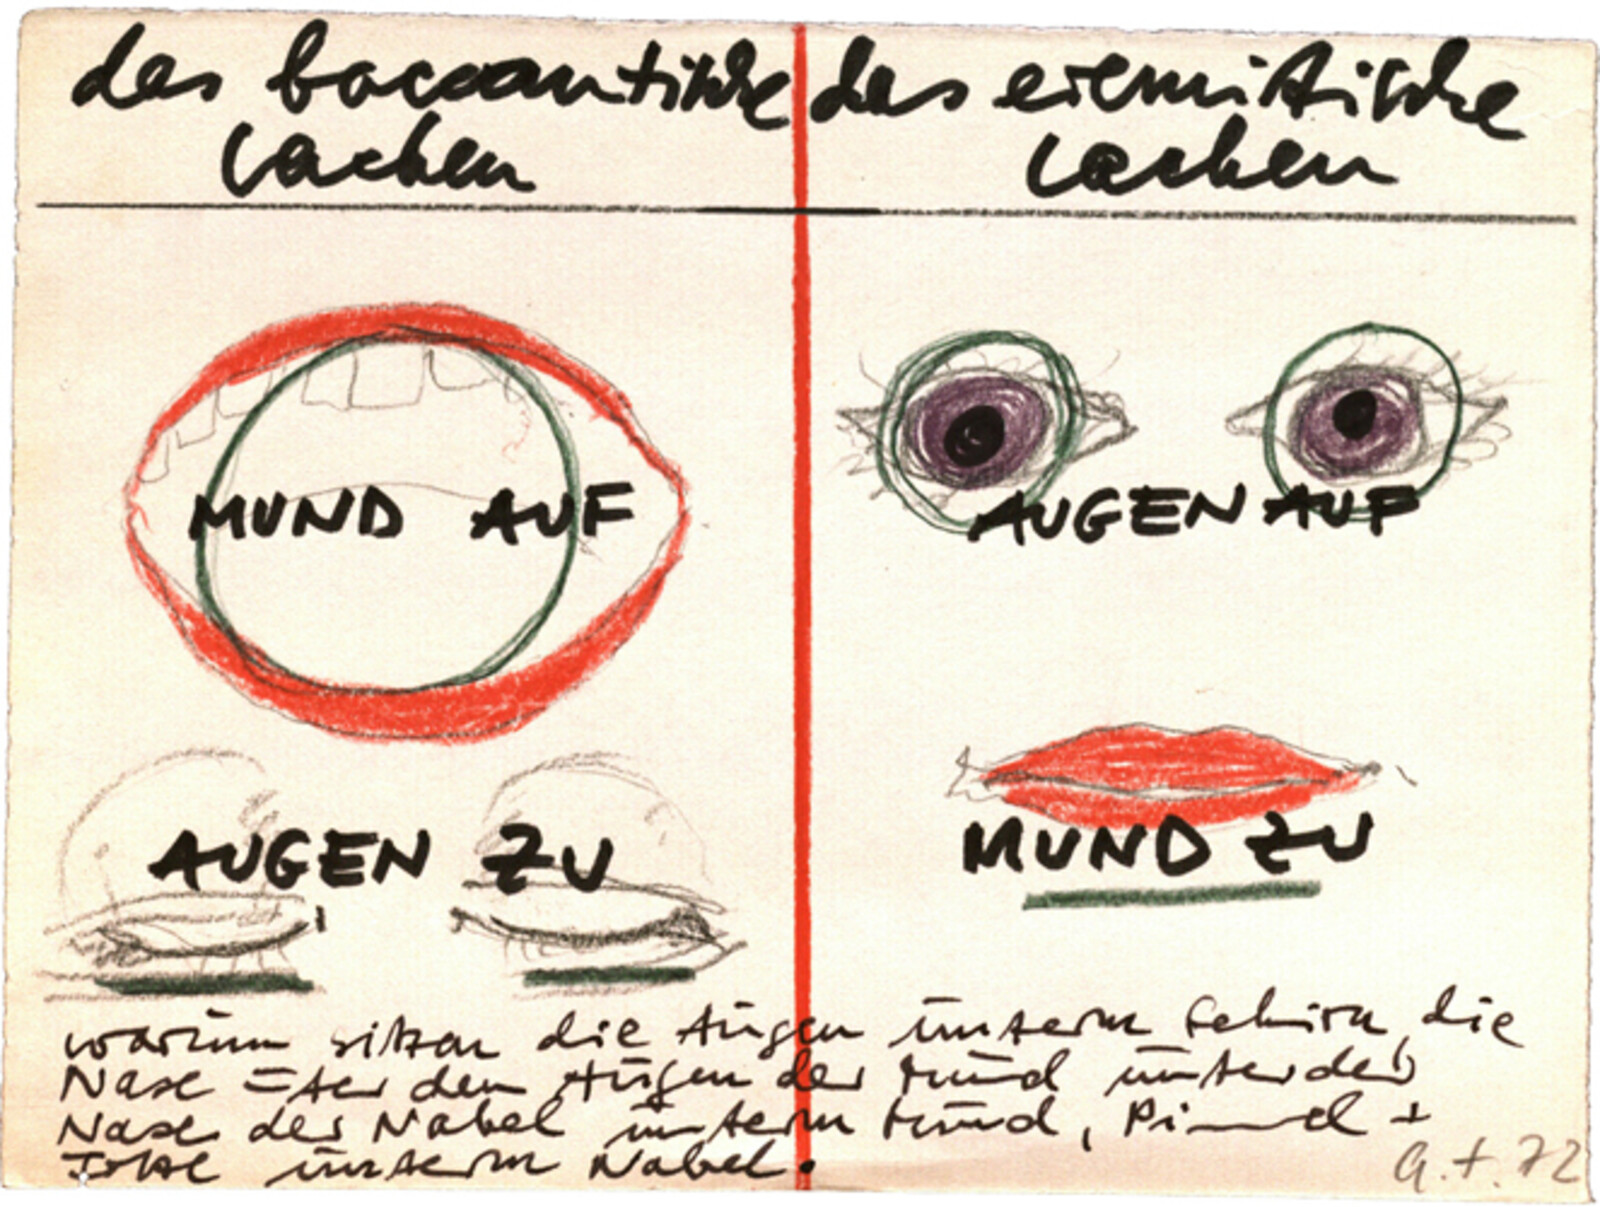 das baccantische
Lachen
das eremitische
Lachen
MUND AUF
AUGEN ZU
AUGEN AUF
MUND ZU
warum sitzen die Augen unterm Gehirn, die
Nase unter den Augen der Mund unter der
Nase der Nabel unterm Mund, Pimmel +
unterm Nabel.
72